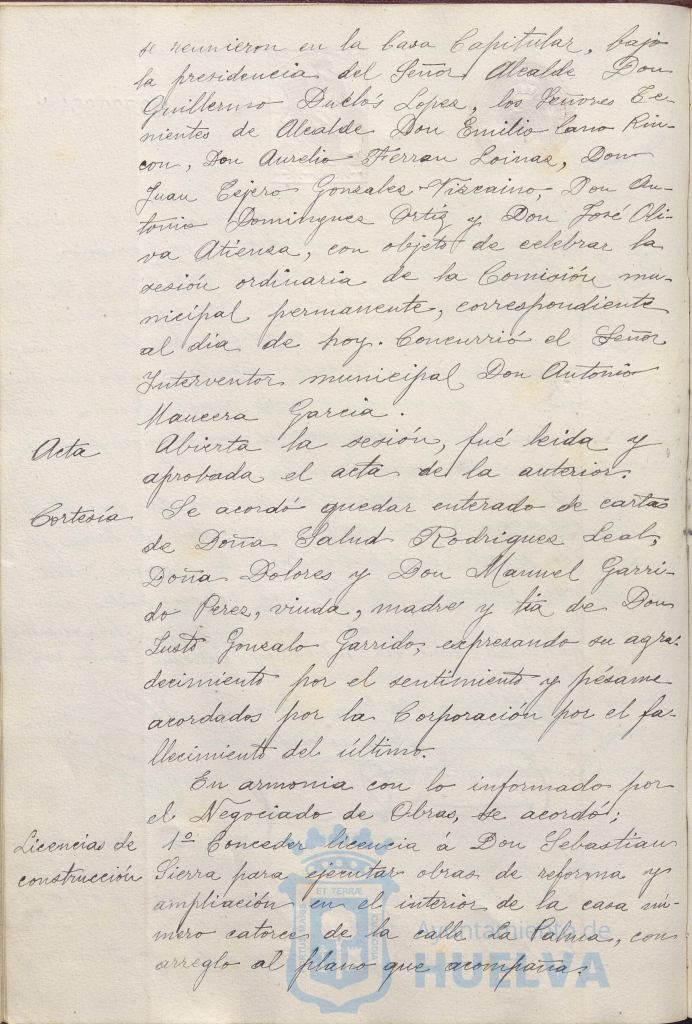 se reunieron en la Casa Capitular, bajo
la presidencia del Señor Alcalde Don
Guillermo Duclós Lopez, los Señores Te-
nientes de Alcalde Don Emilio Cano Rin-
con, Don Aurelio Ferran Loinaz, Don
Juan Tejero Gonzalez-Vizcaino, Don An-
tonio Dominguez Ortiz y Don José Oli-
va Atienza, con objeto de celebrar la
sesión ordinaria de la Comisión mu-
nicipal permanente, correspondiente
al dia de hoy. Concurrió el Señor
Interventor municipal Don Antonio
Mancera Garcia.
Acta Abierta la sesión, fué leida y
aprobada el acta de la anterior.
Cortesía Se acordó quedar enterado de cartas
de Doña Salud Rodriguez Leal,
Doña Dolores y Don Manuel Garri-
do Perez, viuda, madre y tia de Don
Justo Gonzalo Garrido, expresando su agra-
decimiento por el sentimiento y pésame
acordados por la Corporación por el fa-
llecimiento del último.
En armonia con lo informado por
el Negociado de Obras, se acordó;
Licencias de construcción 1º Conceder licencia á Don Sebastian
Sierra para ejecutar obras de reforma y
ampliación en el interior de la casa nú-
mero catorce de la calle La Palma, con
arreglo al plano que acompaña.
Ayuntamiento de
HUELVA